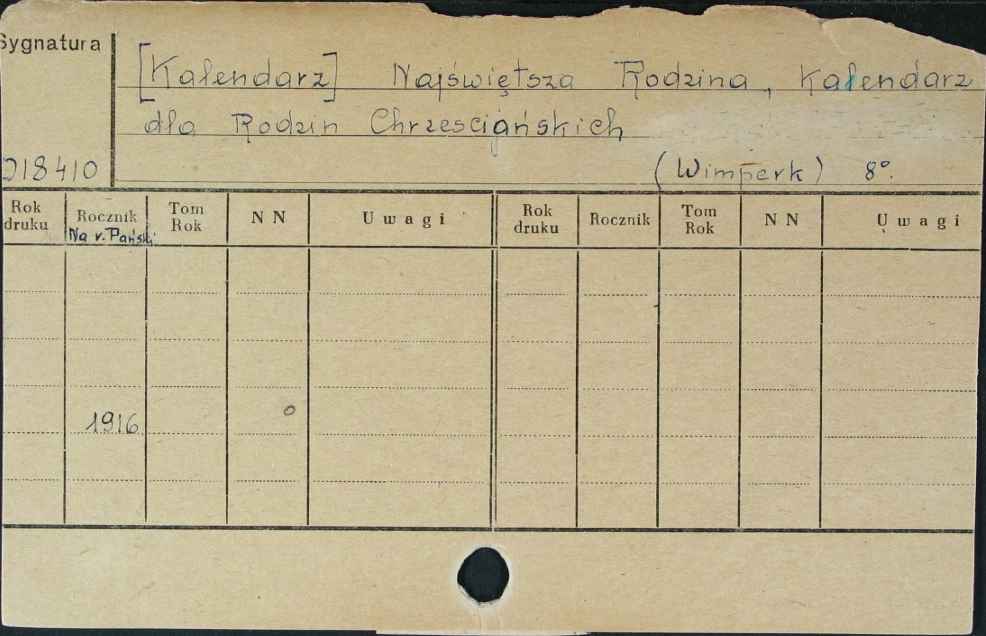 Sygnatura
[Kalendarz] Najświętsza Rodzina, Kalendarz
dla Rodzin Chrzesciańskich
(Wimperk) 8°.
018410
Rok druku Rocznik Na r. Pański Tom Rok N N Uwagi Rok druku Rocznik Tom Rok N N Uwagi
1916